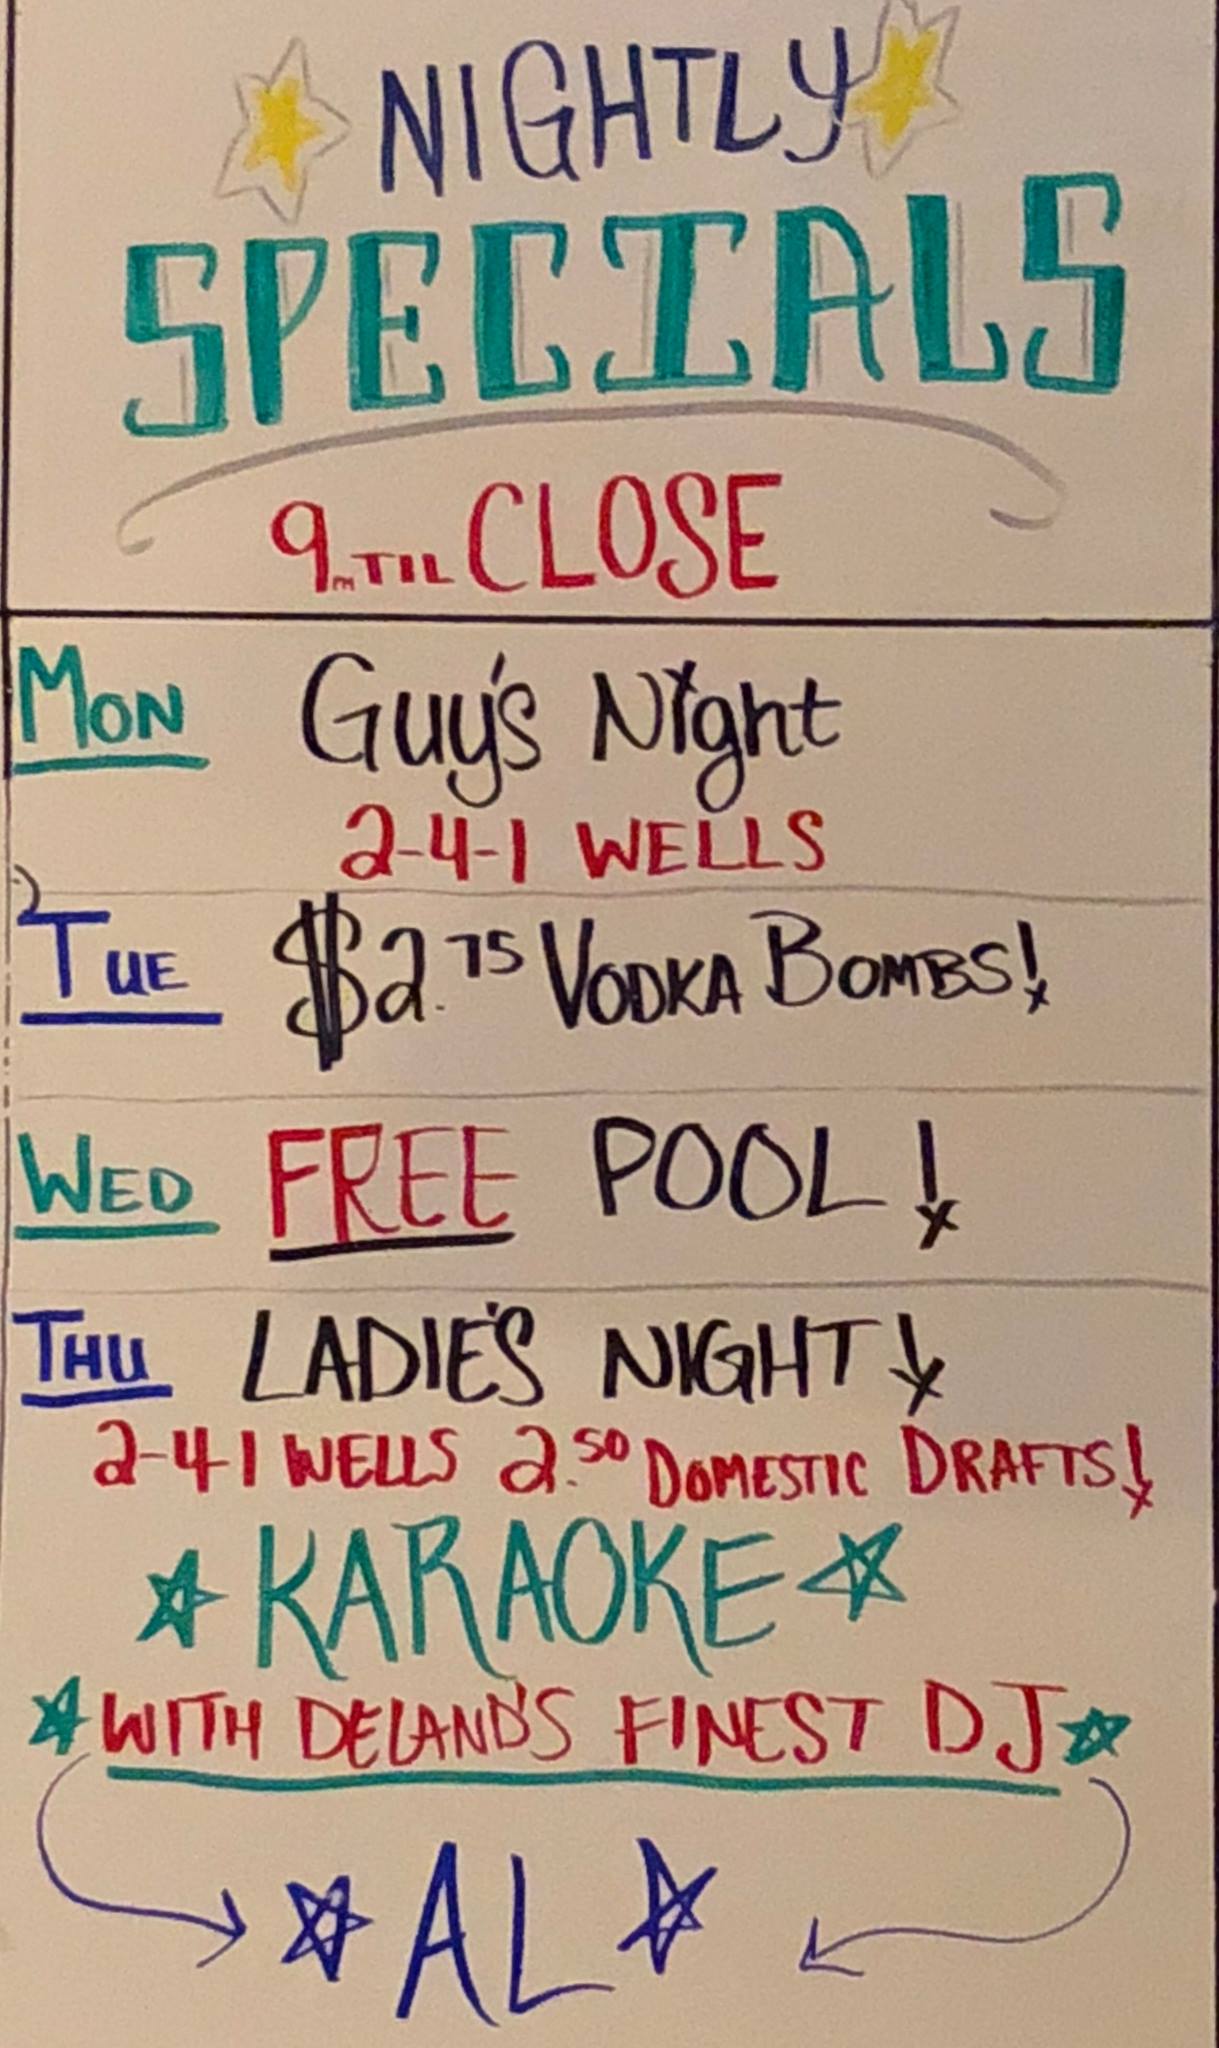 NIGHTLY
SPECIALS
9PM TIL CLOSE
MON Guy's Night
2-4-1 WELLS
TUE $2.75 VODKA BOMBS!
WED FREE POOL!
THU LADIE'S NIGHT!
2-4-1 WELLS 2.50 DOMESTIC DRAFTS!
KARAOKE
WITH DELAND'S FINEST DJ
AL